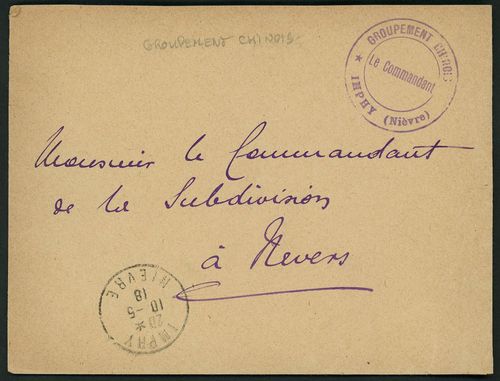 GROUPEMENT CHINOIS
GROUPEMENT CHINOIS
Le Commandant
* IMPHY (Nièvre)
Monsieur le Commandant
de la Subdivision
à Nevers
IMPHY
20 *
10 - 5
18
NIEVRE